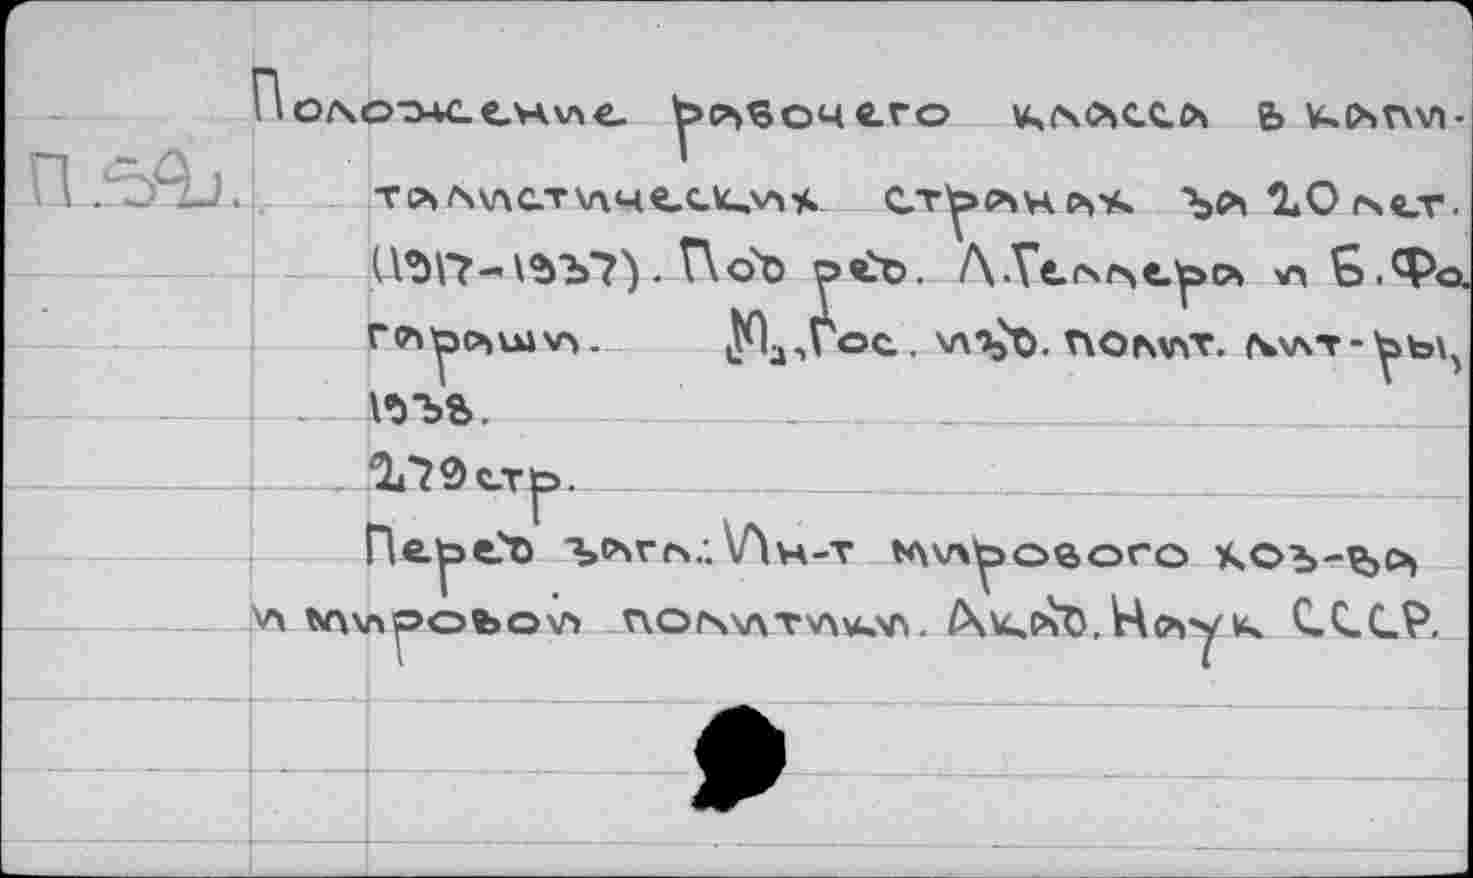 Положение рабочего класса в капи-
талистических странах за 20 лет.
(1917-1937). Под ред. Л.Геллера и Б.Фо.
гараши. М.,Гос. изд. полит. лит-ры,
1938.
279 стр.
Перед загл.: Ин-т мирового хоз-ва
и мировой политики. Акад. Наук СССР.